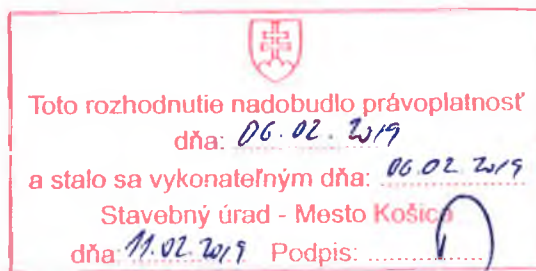 Toto rozhodnutie nadobudlo právoplatnosť
dňa: 06.02.2019
a stalo sa vykonateľným dňa: 06.02.2019
Stavebný úrad - Mesto Košice
dňa: 11.02.2019 Podpis: